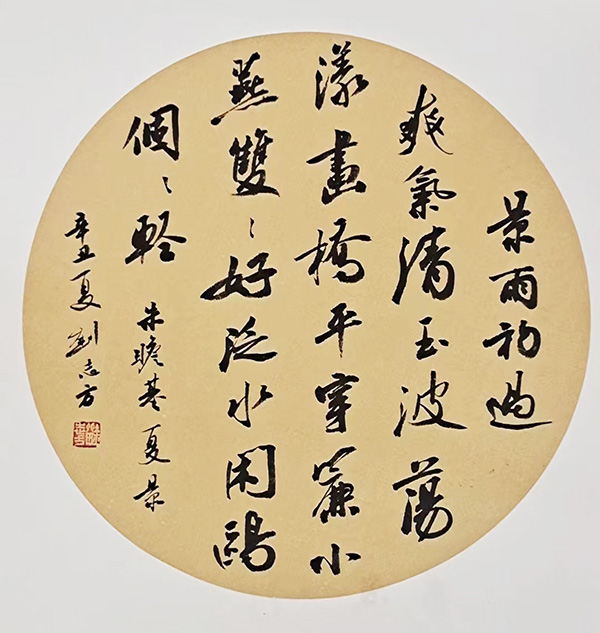 景雨初過
爽氣清玉波蕩
漾畫橋平穿簾小
燕雙〻好泛水闲鷗
個〻輕 朱瞻基夏景
辛丑夏 劉志方